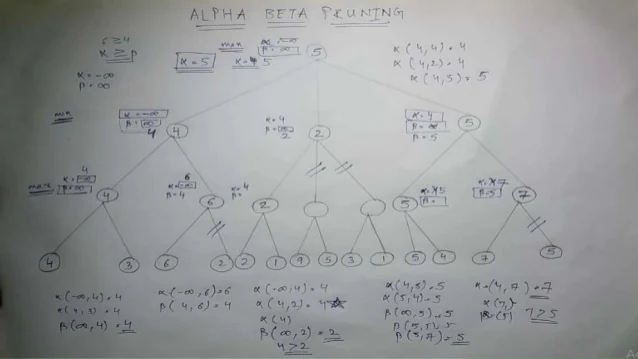 ALPHA BETA PRUNING
6 ≥ 4
α ≥ β
α = -∞
β = ∞
max
α = -∞
β = ∞
α = 5
α = 4 5
5
α(4,4) = 4
α(4,2) = 4
α(4,5) = 5
min
α = -∞
β = ∞
4
4
α = 4
β = ∞
2
2
α = 4
β = ∞
β = 5
5
max
4
α = -∞
β = ∞
4
6
α = -∞
β = 4
6
α = 4
β =
2
5
β =
7
β = 5
7
4 3 6 2 2 1 9 5 3 1 5 4 7 5
α(-∞,4) = 4
α(4,3) = 4
β(∞,4) = 4
α(-∞,6) = 6
β(4,6) = 4
α(-∞,4) = 4
α(4,2) = 4
α(4)
β(∞,2) = 2
4 > 2
α(4,5) = 5
α(5,4) = 5
β(∞,5) = 5
β(5,7) = 5
α(4,7) = 7
7 > 5